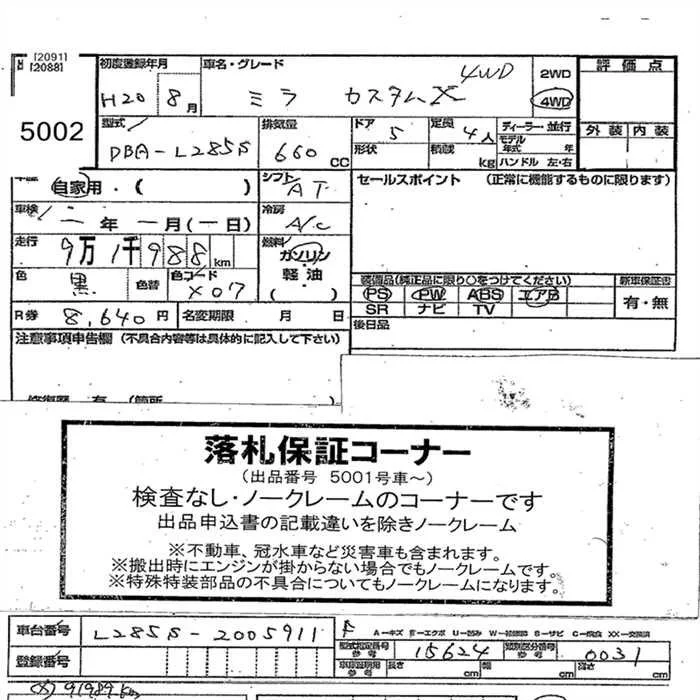 [2091]
[2088]
5002
初度登録年月 車名・グレード 評価点
H20 8月 ミラ カスタムX 4WD 2WD 4WD
型式 排気量 ドア 定員 ディーラー・並行 外装 内装
DBA-L285S 660 CC 5 4人 モデル年式 年
形状 積載 kg ハンドル 左・右
自家用・( ) シフト AT セールスポイント (正常に機能するものに限ります)
車検 年 月(一日) 冷房 A/C
走行 9万1千988km 燃料 ガソリン
色 黒 色替 色コード X07 軽油 ( )
装備品(純正品に限り○をつけてください) 新車保証書
PS PW ABS エアB 有・無
SR ナビ TV
R券 8,640円 名変期限 月 日 後日品
注意事項申告欄 (不具合内容等は具体的に記入して下さい)
落札保証コーナー
(出品番号 5001号車〜)
検査なし・ノークレームのコーナーです
出品申込書の記載違いを除きノークレーム
※不動車、冠水車など災害車も含まれます。
※搬出時にエンジンが掛からない場合でもノークレームです。
※特殊特装部品の不具合についてもノークレームになります。
車台番号 L285S-2005911 F A-キズ E-エクボ U-凹み W-補修跡 S-サビ C-腐食 XX-交換済
登録番号 型式指定番号 参考 15624 類別区分番号 参考 0031
長さ cm 幅 cm 高さ cm
91989km